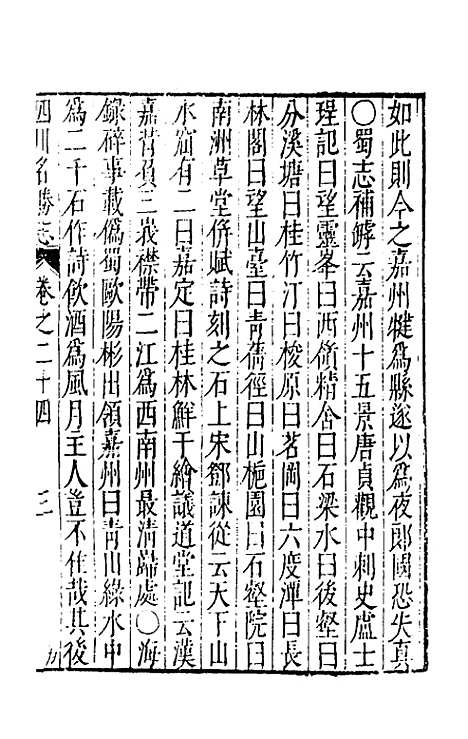 如此則今之嘉州犍爲縣遂以爲夜郎國恐失真
〇蜀志補罅云嘉州十五景唐貞觀中刺史盧士
珵記曰望靈峯曰西脩精舍曰石梁水曰後壑曰
分溪塘曰桂竹汀曰梭原曰茗岡曰六度潭曰長
林閣曰望山臺曰青蒨徑曰山梔園曰石壑院曰
南洲草堂併賦詩刻之石上宋鄧諫從云天下山
水窟有二曰嘉定曰桂林鮮于繪議道堂記云漢
嘉背負三峩襟帶二江爲西南州最清勝處〇海
錄碎事載僞蜀歐陽彬出領嘉州曰青山綠水中
爲二千石作詩飲酒爲風月主人豈不佳哉其後
四川名勝志 卷之二十四 三